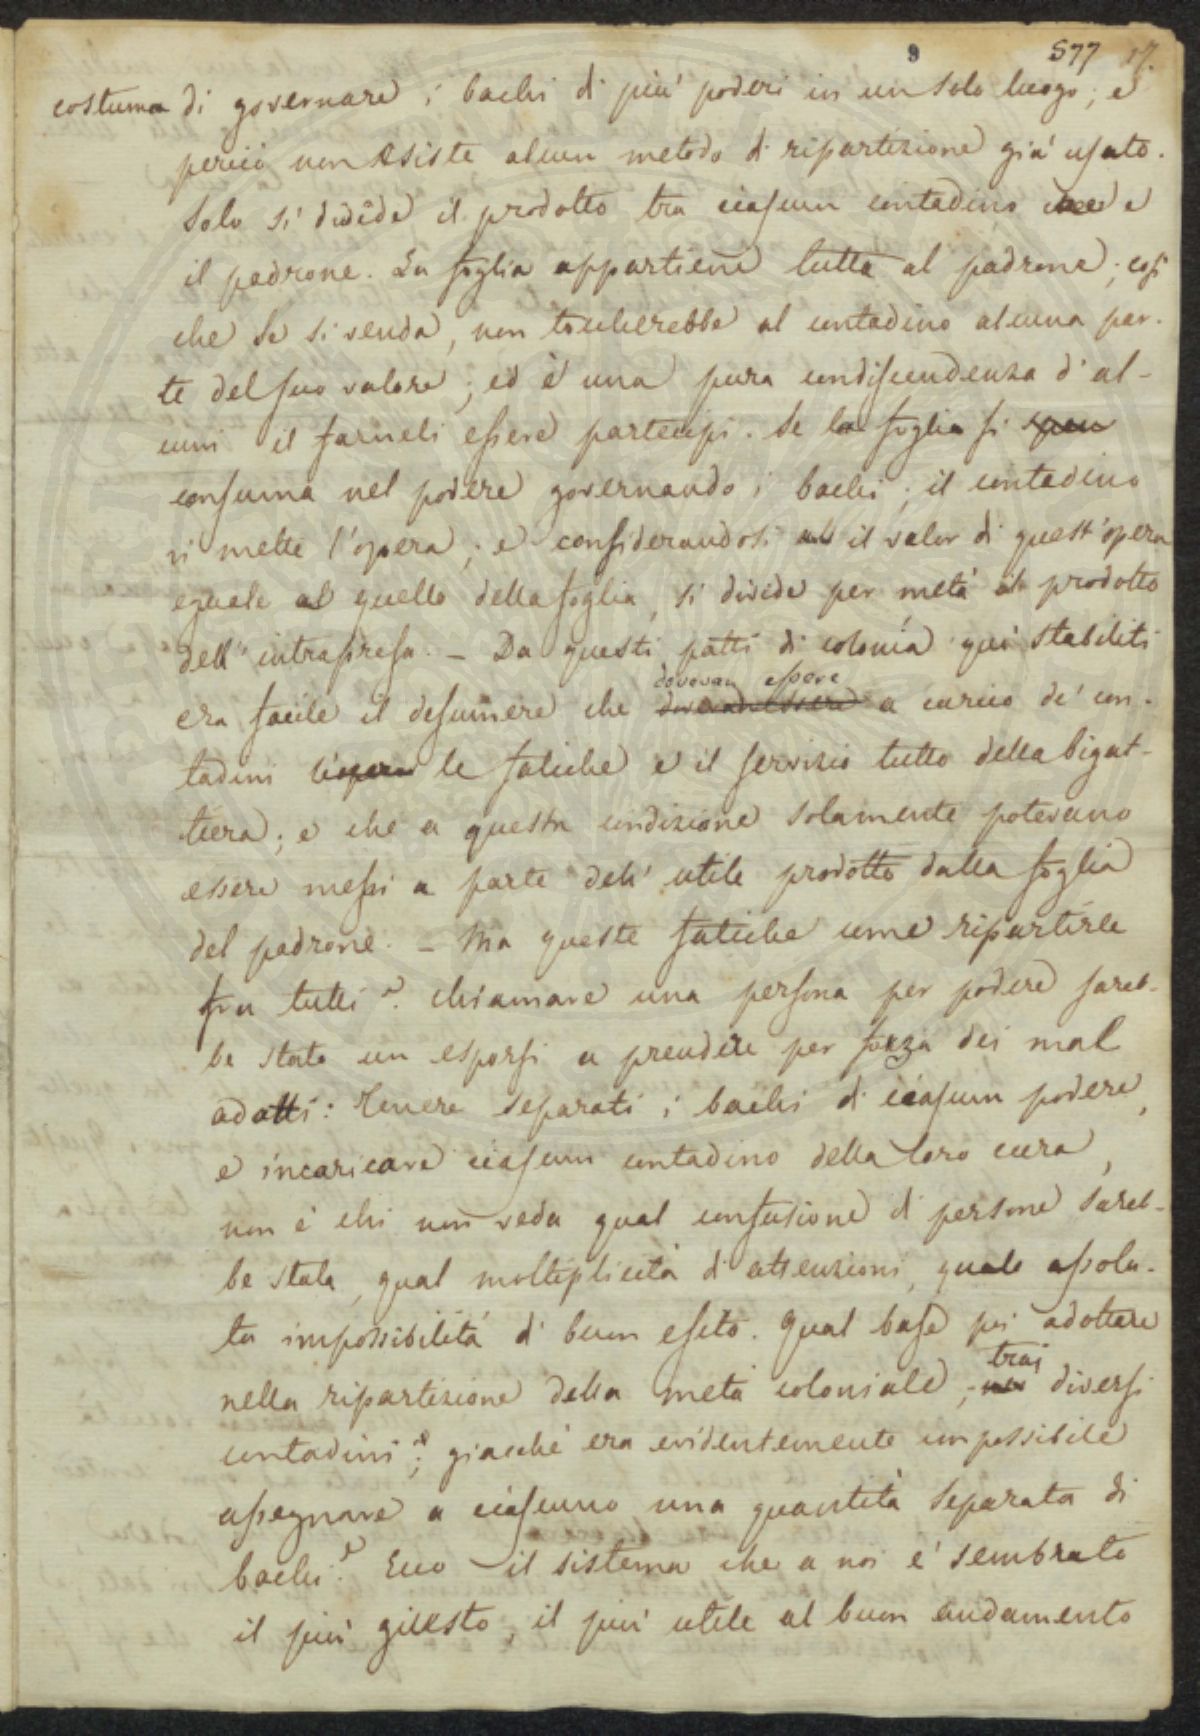 9 577 17.
costuma di governare i bachi di più poderi in un solo luogo; e
perciò non esiste alcun metodo di ripartizione già usato.
Solo si divide il prodotto tra ciascun contadino e
il padrone. La foglia appartiene tutta al padrone; così
che se si venda, non toccherebbe al contadino alcuna par-
te del suo valore; ed è una pura condiscendenza d'al-
cuni il farneli essere partecipi. Se la foglia si
consuma nel podere governando i bachi, il contadino
vi mette l'opera; e considerandosi il valor di quest'opera
eguale a quello della foglia, si divide per metà il prodotto
dell'intrapresa. – Da questi patti di colonìa quì stabiliti
dovevan essere
era facile il desumere che dovevan essere a carico de' con-
tadini l'opera le fatiche e il servizio tutto della bigat-
tiera; e che a questa condizione solamente potevano
essere messi a parte dell'utile prodotto dalla foglia
del padrone. – Ma queste fatiche come ripartirle
fra tutti? chiamare una persona per podere sareb-
be stato un esporsi a prendere per forza dei mal
adatti: Tenere separati i bachi di ciascun podere,
e incaricare ciascun contadino della loro cura,
non è chi non veda qual confusione di persone sareb-
be stata, qual moltiplicità di attenzioni, quale assolu-
ta impossibilità di buon esito. Qual base poi adottare
trai
nella ripartizione della metà coloniale, nei diversi
contadini; giacchè era evidentemente impossibile
assegnare a ciascuno una quantità separata di
bachi? Ecco il sistema che a noi è sembrato
il più giusto, il più utile al buon andamento